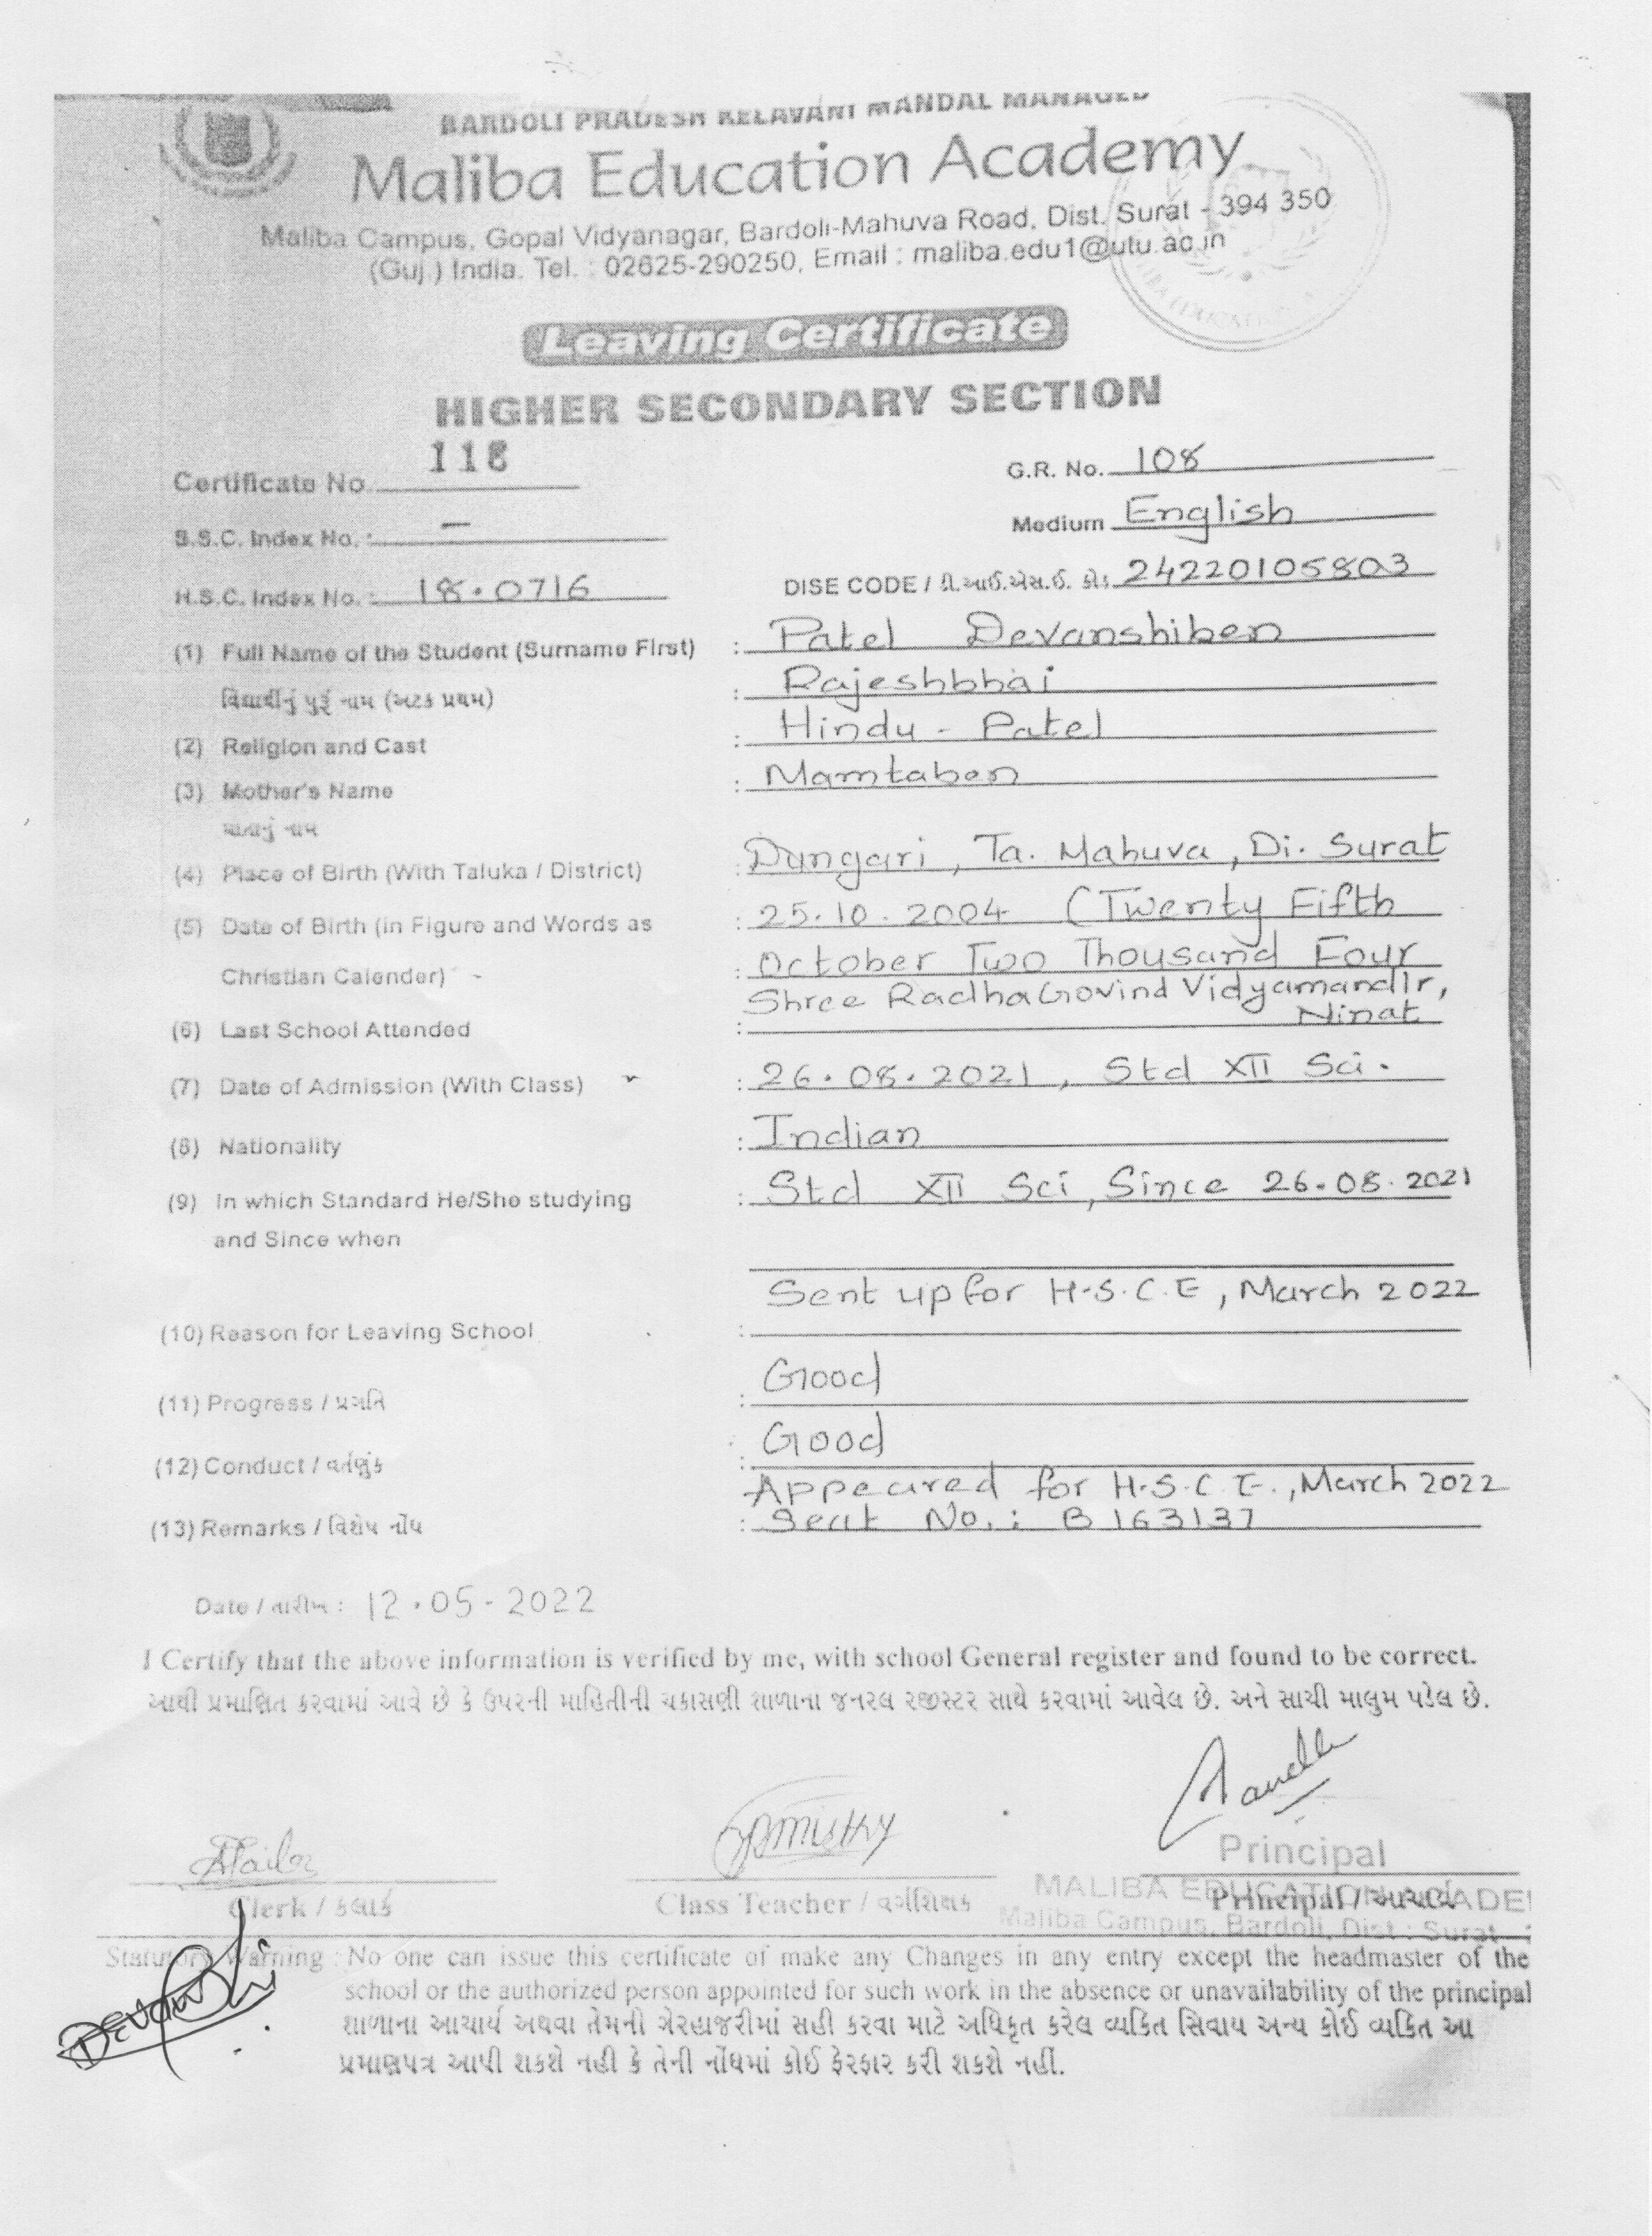 BARDOLI PRADESH KELAVANI MANDAL MANAGED
Maliba Education Academy
Maliba Campus, Gopal Vidyanagar, Bardoli-Mahuva Road, Dist. Surat - 394 350
(Guj.) India. Tel. : 02625-290250, Email : maliba.edu1@utu.ac.in
Leaving Certificate
HIGHER SECONDARY SECTION
Certificate No. 118 G.R. No. 108
S.S.C. Index No. : - Medium English
H.S.C. Index No. : 18.0716 DISE CODE / ડી.આઈ.એસ.ઈ. કોડ 24220105803
(1) Full Name of the Student (Surname First) : Patel Devanshiben
વિદ્યાર્થીનું પુરૂં નામ (અટક પ્રથમ) : Rajeshbhai
(2) Religion and Cast : Hindu - Patel
(3) Mother's Name : Mamtaben
માતાનું નામ
(4) Place of Birth (With Taluka / District) : Dungari, Ta. Mahuva, Di. Surat
(5) Date of Birth (in Figure and Words as : 25.10.2004 (Twenty Fifth
Christian Calender) - : October Two Thousand Four
Shree RadhaGovind Vidyamandir,
(6) Last School Attended : Ninat
(7) Date of Admission (With Class) : 26.08.2021, Std XII Sci.
(8) Nationality : Indian
(9) In which Standard He/She studying : Std XII Sci, Since 26.08.2021
and Since when
(10) Reason for Leaving School : Sent up for H.S.C.E, March 2022
(11) Progress / પ્રગતિ : Good
(12) Conduct / વર્તણુંક : Good
Appeared for H.S.C.E., March 2022
(13) Remarks / વિશેષ નોંધ : Seat No. : B 163137
Date / તારીખ : 12.05-2022
I Certify that the above information is verified by me, with school General register and found to be correct.
આથી પ્રમાણિત કરવામાં આવે છે કે ઉપરની માહિતીની ચકાસણી શાળાના જનરલ રજીસ્ટર સાથે કરવામાં આવેલ છે. અને સાચી માલુમ પડેલ છે.
Principal
MALIBA EDUCATION ACADE
Clerk / કલાર્ક Class Teacher / વર્ગશિક્ષક Principal / આચાર્ય
Maliba Campus, Bardoli, Dist : Surat
Statutory Warning : No one can issue this certificate of make any Changes in any entry except the headmaster of the
school or the authorized person appointed for such work in the absence or unavailability of the principal
શાળાના આચાર્ય અથવા તેમની ગેરહાજરીમાં સહી કરવા માટે અધિકૃત કરેલ વ્યકિત સિવાય અન્ય કોઈ વ્યકિત આ
પ્રમાણપત્ર આપી શકશે નહી કે તેની નોંધમાં કોઈ ફેરફાર કરી શકશે નહીં.
DEVANSHI